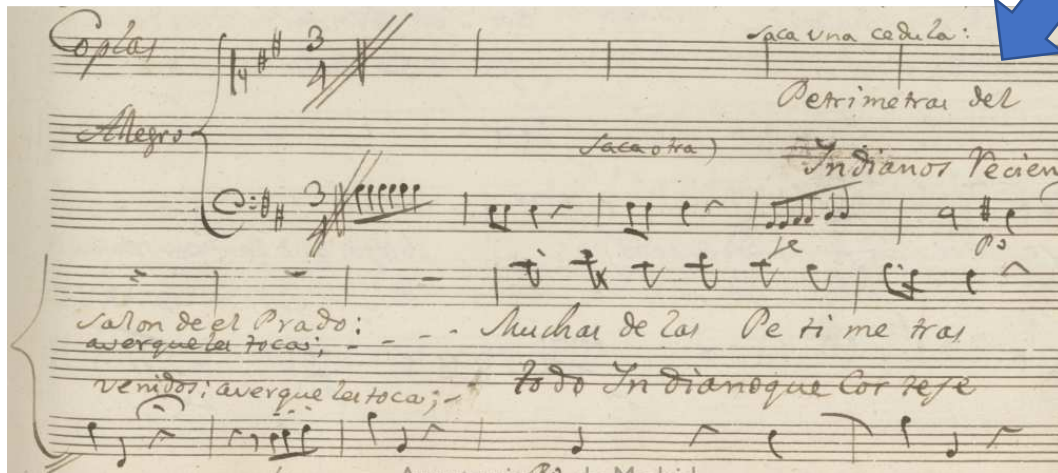 Coplas
saca una cedula:
Petrimetras del
Allegro
saca otra)
Indianos Recien
fe
po
salon de el Prado:
averque les tocas; - - - Muchas de las Pe ti me tras
venidos; averque les toca; - todo Indiano que Cortese